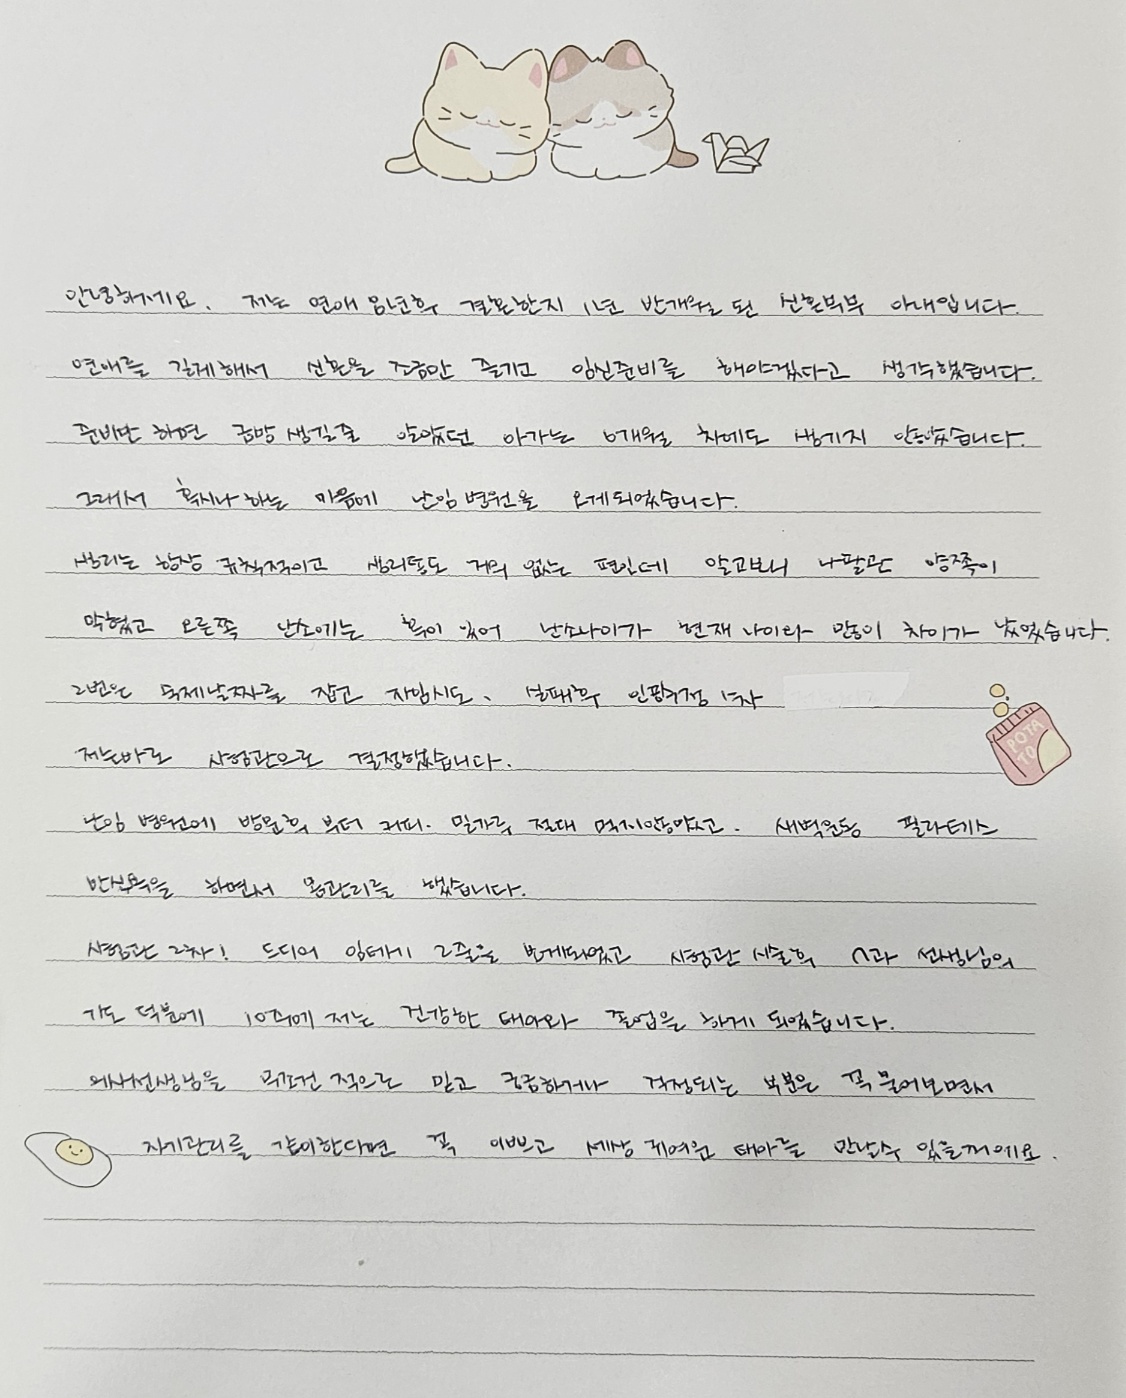 안녕하세요. 저는 연애 임년후 결혼한지 1년 반개월 된 신혼부부 아내입니다.
연애를 길게해서 신혼을 조금만 즐기고 임신준비를 해야겠다고 생각했습니다.
준비만 하면 금방 생길줄 알았던 아가는 6개월 차에도 생기지 않았습니다.
그래서 혹시나 하는 마음에 난임 병원을 오게되었습니다.
생리는 항상 규칙적이고 생리통도 거의 없는 편인데 알고보니 나팔관 양쪽이
막혔고 오른쪽 난소에는 혹이 있어 난소나이가 현재 나이와 많이 차이가 났었습니다.
2번은 숙제날짜를 잡고 자임시도. 실패후 인공수정 1차
저는바로 시험관으로 결정했습니다.
난임 병원에 방문후 부터 커피. 밀가루 절대 먹지않았고. 새벽운동 필라테스
반신욕을 하면서 몸관리를 했습니다.
시험관 2차! 드디어 임테기 2줄을 보게되었고 시험관 시술후 n과 선생님의
기도 덕분에 10주에 저는 건강한 태아와 졸업을 하게 되었습니다.
의사선생님을 무조건 적으로 믿고 궁금하거나 걱정되는 부분은 꼭 물어보면서
자기관리를 같이한다면 꼭 이쁘고 세상 귀여운 태아를 만날수 있을꺼에요.
POTA
TO